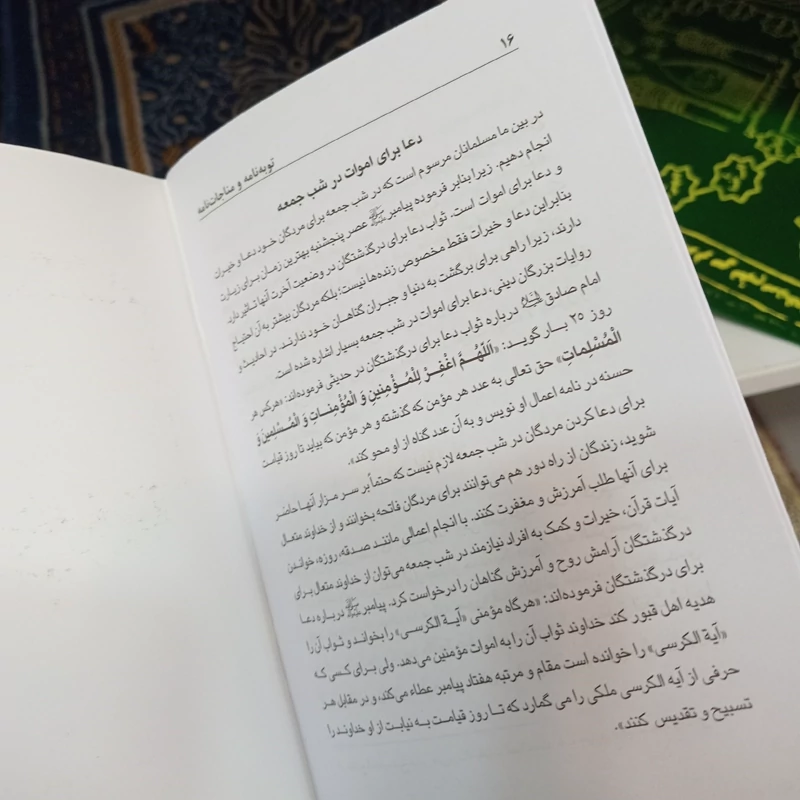 ۱۶
توبه‌نامه و مناجات‌نامه
دعا برای اموات در شب جمعه
در بین ما مسلمانان مرسوم است که در شب جمعه برای مردگان خود دعا و خیرات
انجام دهیم. زیرا بنابر فرموده پیامبرﷺ عصر پنجشنبه بهترین زمان برای زیارت
و دعا برای اموات است. ثواب دعا برای درگذشتگان در وضعیت آخرت آنها تاثیر دارد.
بنابراین دعا و خیرات فقط مخصوص زنده‌ها نیست؛ بلکه مردگان بیشتر به آن احتیاج
دارند، زیرا راهی برای برگشت به دنیا و جبران گناهان خود ندارند. در احادیث و
روایات بزرگان دینی، دعا برای اموات در شب جمعه بسیار اشاره شده است.
امام صادق درباره ثواب دعا برای درگذشتگان در حدیثی فرموده‌اند: «هرکس هر
روز ۲۵ بار گوید: «اَللّهُمَّ اغْفِرْ لِلْمُؤْمِنینَ وَ الْمُؤْمِناتِ وَ الْمُسْلِمینَ وَ
الْمُسْلِماتِ» حق تعالی به عدد هر مؤمن که گذشته و هر مؤمن که بیاید تا روز قیامت
حسنه در نامه اعمال او نویس و به آن عدد گناه از او محو کند».
برای دعا کردن مردگان در شب جمعه لازم نیست که حتماً بر سر مزار آنها حاضر
شوید، زندگان از راه دور هم می‌توانند برای مردگان فاتحه بخوانند و از خداوند متعال
برای آنها طلب آمرزش و مغفرت کنند. با انجام اعمالی مانند صدقه، روزه، خواندن
آیات قرآن، خیرات و کمک به افراد نیازمند در شب جمعه می‌توان از خداوند متعال برای
درگذشتگان آرامش روح و آمرزش گناهان را درخواست کرد. پیامبرﷺ درباره دعا
برای درگذشتگان فرموده‌اند: «هرگاه مؤمنی «آیة الکرسی» را بخواند و ثواب آن را
هدیه اهل قبور کند خداوند ثواب آن را به اموات مؤمنین می‌دهد. ولی برای کسی که
«آیة الکرسی» را خوانده است مقام و مرتبه هفتاد پیامبر عطاء می‌کند، و در مقابل هر
حرفی از آیه الکرسی ملکی را می گمارد که تا روز قیامت به نیابت از او خداوند را
تسبیح و تقدیس کنند».